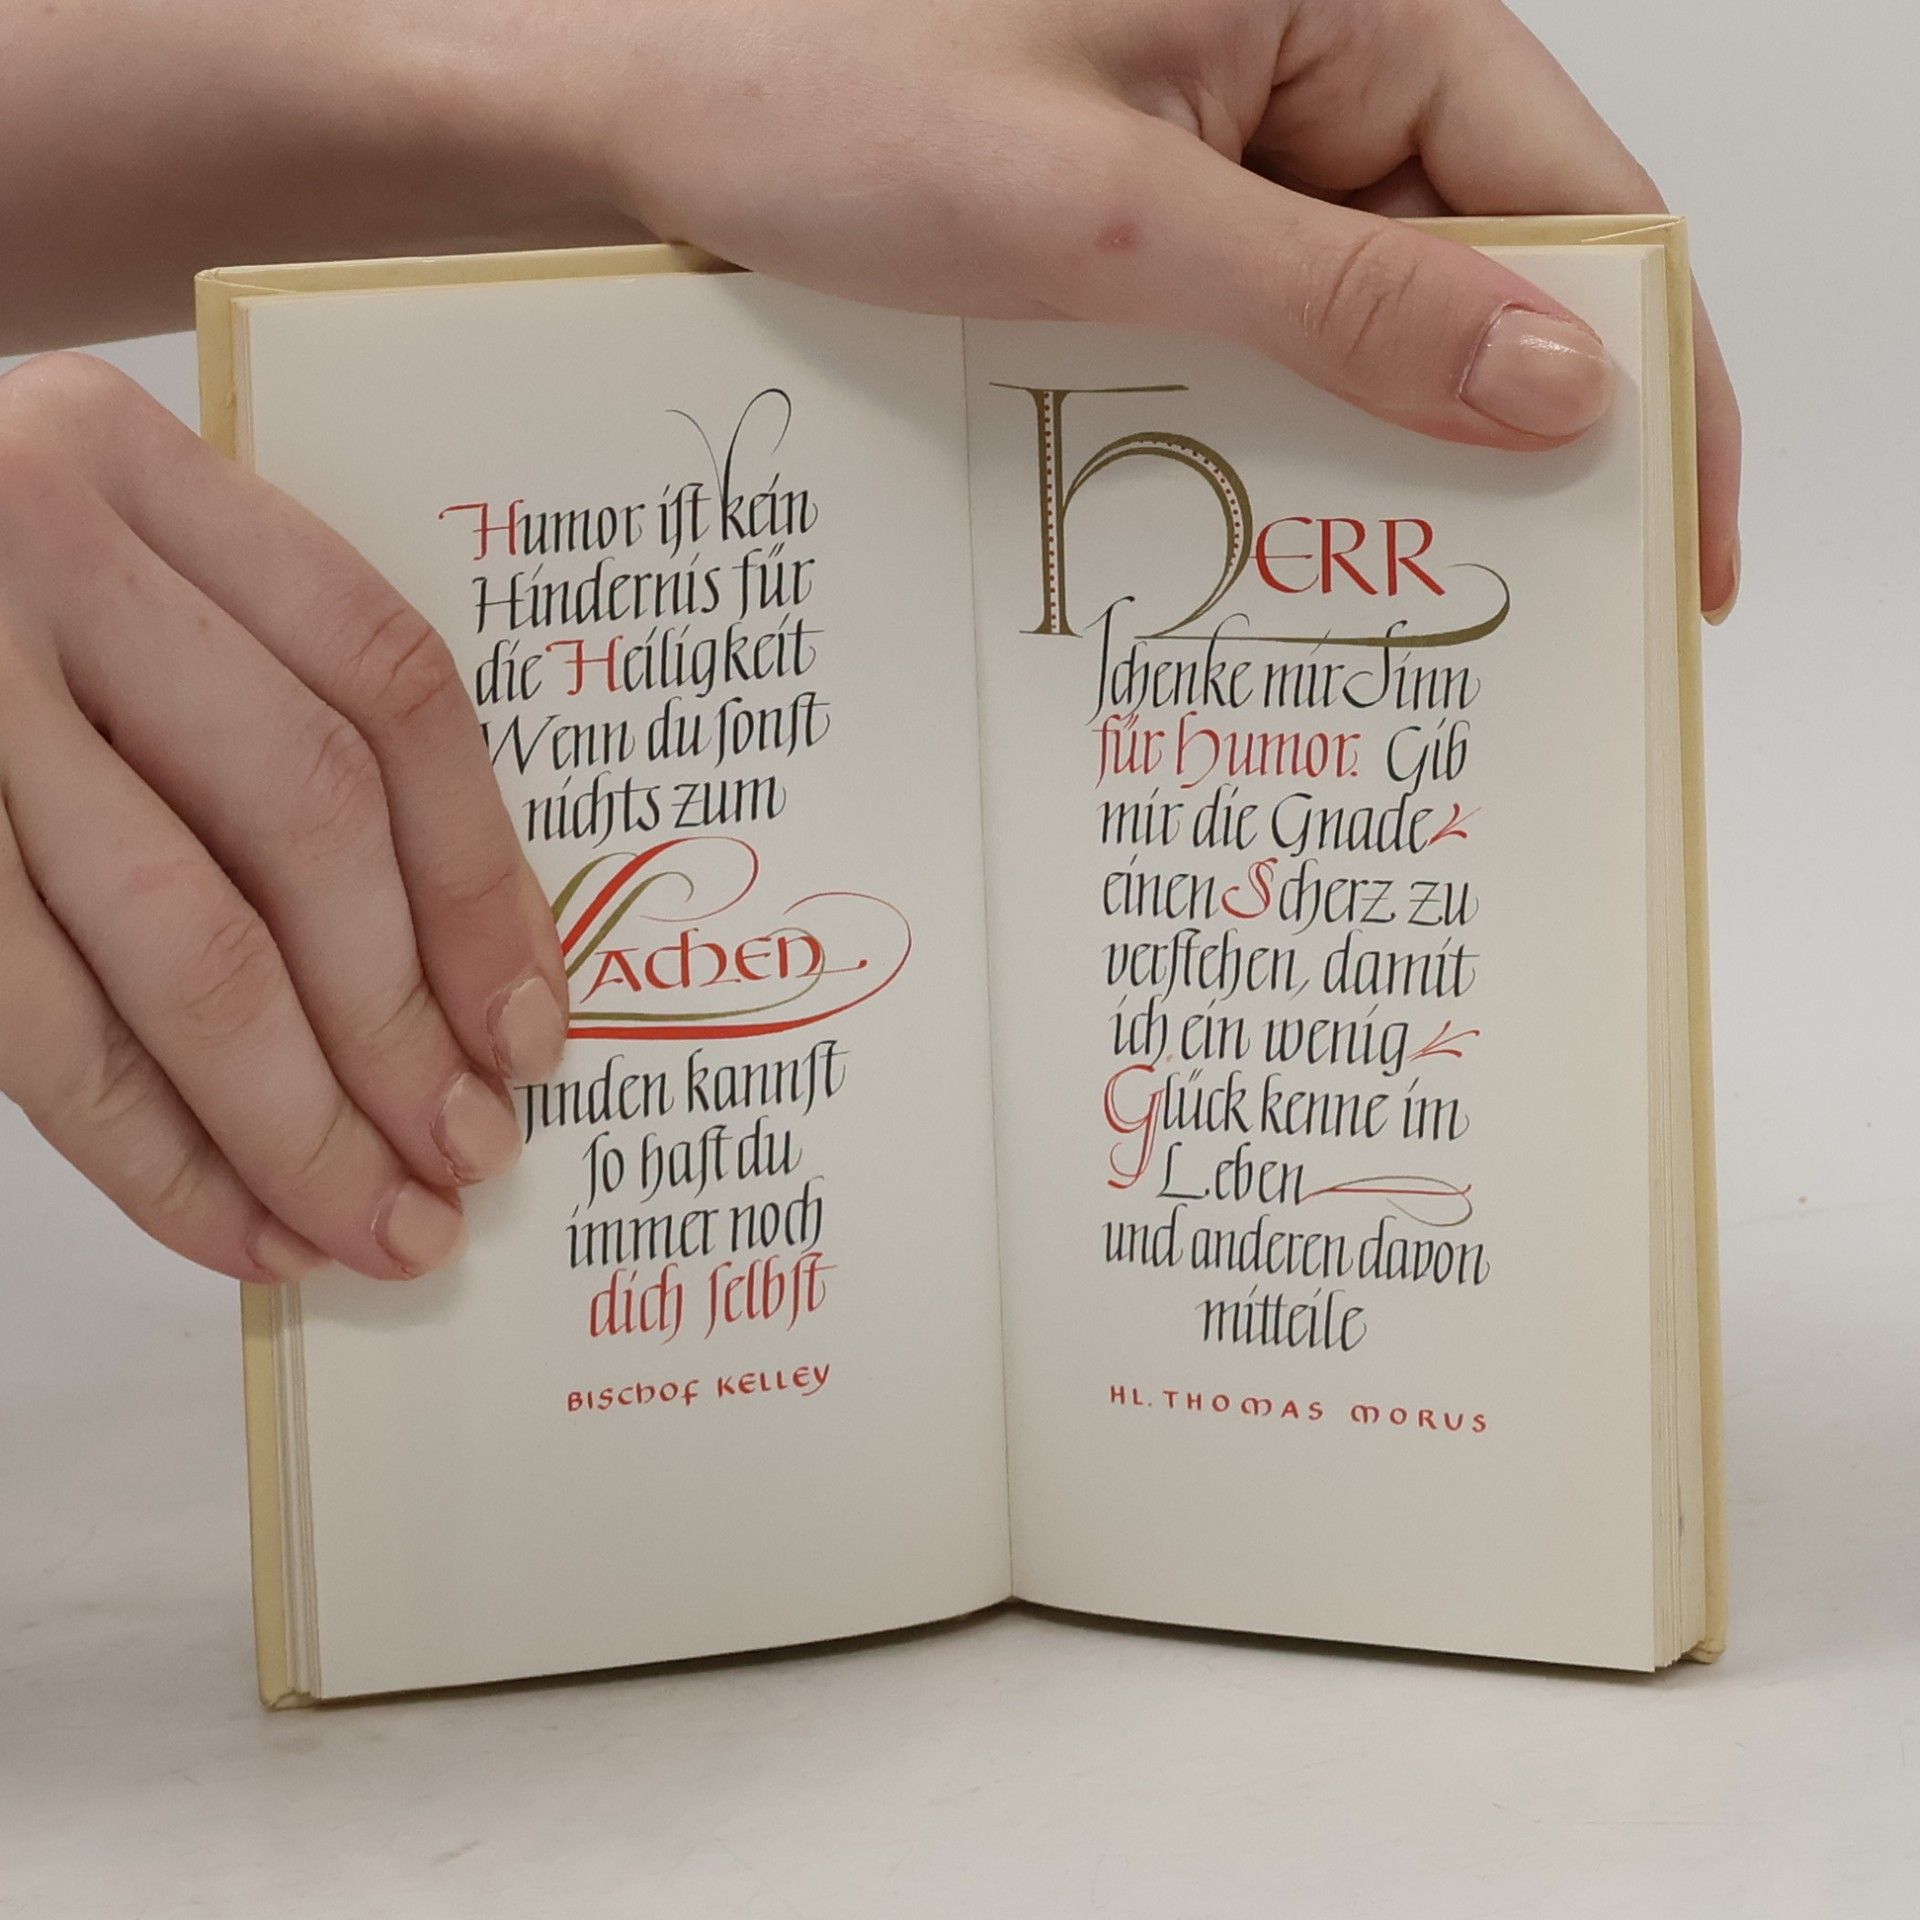 Humor ist kein
Hindernis für
die Heiligkeit
Wenn du sonst
nichts zum
Lachen
finden kannst
so hast du
immer noch
dich selbst
BISCHOF KELLEY
HERR
schenke mir Sinn
für Humor. Gib
mir die Gnade
einen Scherz zu
verstehen, damit
ich ein wenig
Glück kenne im
Leben
und anderen davon
mitteile
HL. THOMAS MORUS